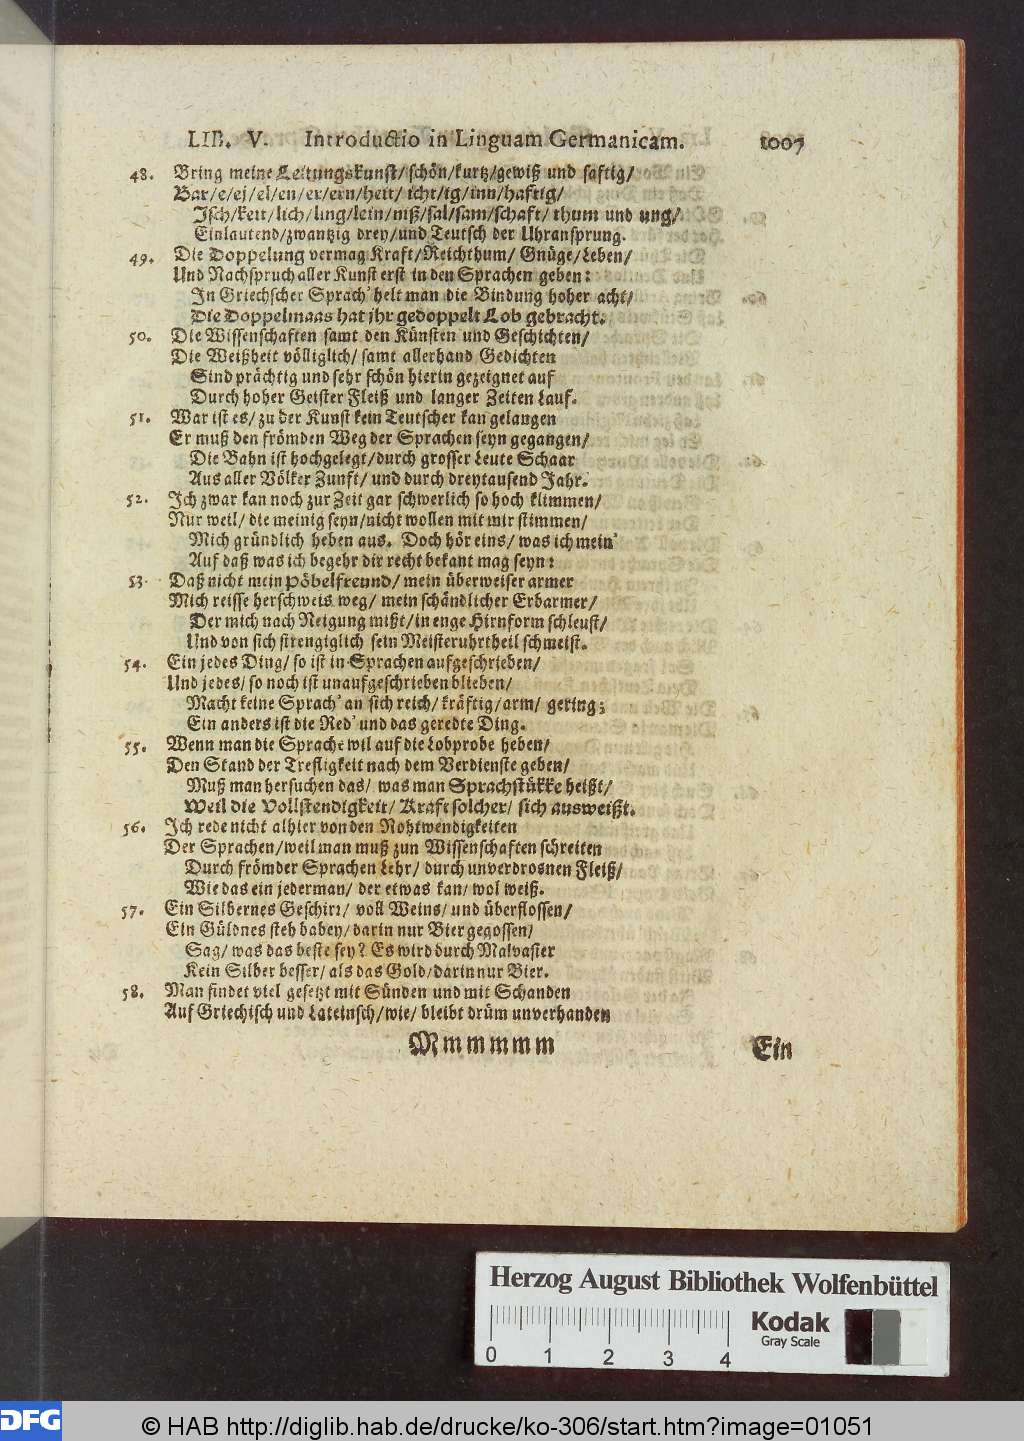 LIB. V. Introductio in Linguam Germanicam. 1007
48. Bring meine Leitungskunst/ schön/kurtz/gewiß und saftig/
Bar/e/ei/el/en/er/ern/heit/ icht/ig/inn/haftig/
Isch/keit/lich/ling/lein/niß/sal/sam/schaft/ thum und ung/
Einlautend/zwantzig drey/und Teutsch der Uhransprung.
49. Die Doppelung vermag Kraft/Reichthum/ Gnüge/Leben/
Und Nachspruch aller Kunst erst in den Sprachen geben:
In Griechscher Sprach' helt man die Bindung hoher acht/
Die Doppelmaas hat jhr gedoppelt Lob gebracht.
50. Die Wissenschaften samt den Künsten und Geschichten/
Die Weißheit völliglich/ samt allerhand Gedichten
Sind prächtig und sehr schön hierin gezeignet auf
Durch hoher Geister Fleiß und langer Zeiten Lauf.
51. War ist es/ zu der Kunst kein Teutscher kan gelangen
Er muß den frömden Weg der Sprachen seyn gegangen/
Die Bahn ist hochgelegt/durch grosser Leute Schaar
Aus aller Völker Zunft/ und durch dreytausend Jahr.
52. Ich zwar kan noch zur Zeit gar schwerlich so hoch klimmen/
Nur weil/ die meinig seyn/nicht wollen mit mir stimmen/
Mich gründlich heben aus. Doch hör eins/ was ich mein'
Auf daß was ich begehr dir recht bekant mag seyn:
53. Daß nicht mein Pöbelfreund/ mein überweiser armer
Mich reisse herschweis weg/ mein schändlicher Erbarmer/
Der mich nach Neigung mißt/in enge Hirnform schleust/
Und von sich strengiglich sein Meisteruhrtheil schmeist.
54. Ein jedes Ding/ so ist in Sprachen aufgeschrieben/
Und jedes/ so noch ist unaufgeschrieben blieben/
Macht keine Sprach' an sich reich/ kräftig/arm/ gering;
Ein anders ist die Red' und das geredte Ding.
55. Wenn man die Sprache wil auf die Lobprobe heben/
Den Stand der Trefligkeit nach dem Verdienste geben/
Muß man hersuchen das/ was man Sprachstükke heißt/
Weil die Vollstendigkeit/ Kraft solcher/ sich ausweißt.
56. Ich rede nicht alhier von den Nohtwendigkeiten
Der Sprachen/weil man muß zun Wissenschaften schreiten
Durch frömder Sprachen Lehr/ durch unverdrosnen Fleiß/
Wie das ein jederman/ der etwas kan/ wol weiß.
57. Ein Silbernes Geschirr/ voll Weins/ und überflossen/
Ein Güldnes steh babey/ darin nur Bier gegossen/
Sag/ was das beste sey? Es wird durch Malvasier
Kein Silber besser/ als das Gold/darin nur Bier.
58. Man findet viel gesetzt mit Sünden und mit Schanden
Auf Griechisch und Lateinsch/wie/ bleibt drüm unverhanden
Mmmmmm Ein
Herzog August Bibliothek Wolfenbüttel
Kodak
Gray Scale
0 1 2 3 4
DFG © HAB http://diglib.hab.de/drucke/ko-306/start.htm?image=01051